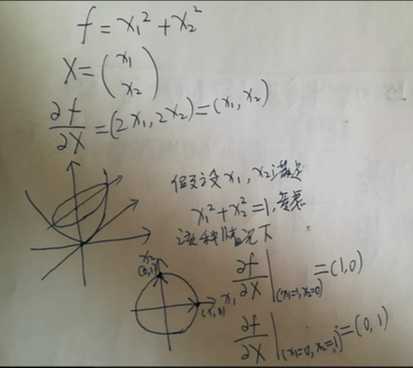 f = x₁² + x₂²
X = (x₁
x₂)
∂f/∂X = (2x₁, 2x₂) = (x₁, x₂)
假设 x₁, x₂ 满足
x₁² + x₂² = 1,
这种情况下
x₂
(0,1)
x₁
(1,0)
∂f/∂X |(x₁=1, x₂=0) = (1,0)
∂f/∂X |(x₁=0, x₂=1) = (0,1)